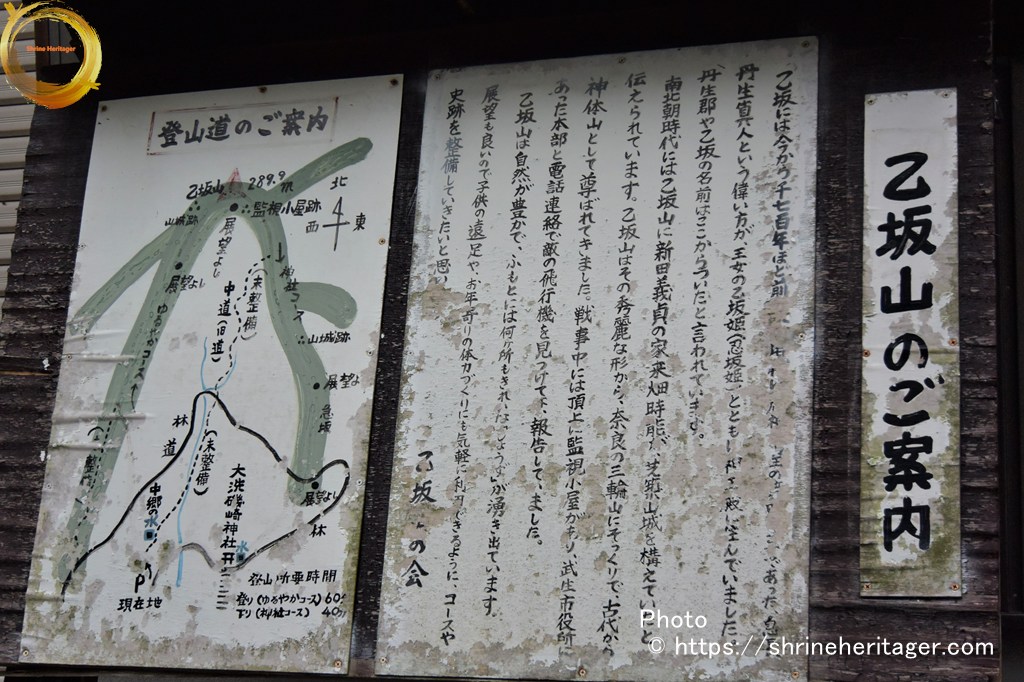 Shrine Heritager
登山道のご案内
乙坂山 289.9m
北
西 東
山城跡
監視小屋跡
展望よし
展望よし
ゆるやかコース
中道(旧道)
(未整備)
神社コース
山城跡
展望よ
急坂
林道
(未整備)
展望よし
林
大洗磯崎神社
水
中郷の水
P
現在地
登山所要時間
登り(ゆるやかコース)60分
下り(神社コース)40分
乙坂には今から千七百年ほど前
丹生真人という偉い方が、王女の乙坂姫(忍坂姫)とともに
住んでいました
丹生郡や乙坂の名前はここからついたと言われています。
南北朝時代には乙坂山に新田義貞の家来畑時能が、山城を構えていたと
伝えられています。乙坂山はその秀麗な形から、奈良の三輪山にそっくりで、古代から
神体山として尊ばれてきました。戦事中には頂上に監視小屋があり、武生市役所に
あった本部と電話連絡で敵の飛行機を見つけて、報告していました。
乙坂山は自然が豊かで、ふもとには何ヶ所もきれいな「しょうず」が湧き出ています。
展望も良いので子供の遠足や、お年寄りの体力づくりにも気軽に利用できるように、コースや
史跡を整備していきたいと思い
乙坂 の会
乙坂山のご案内
Photo
© https://shrineheritager.com